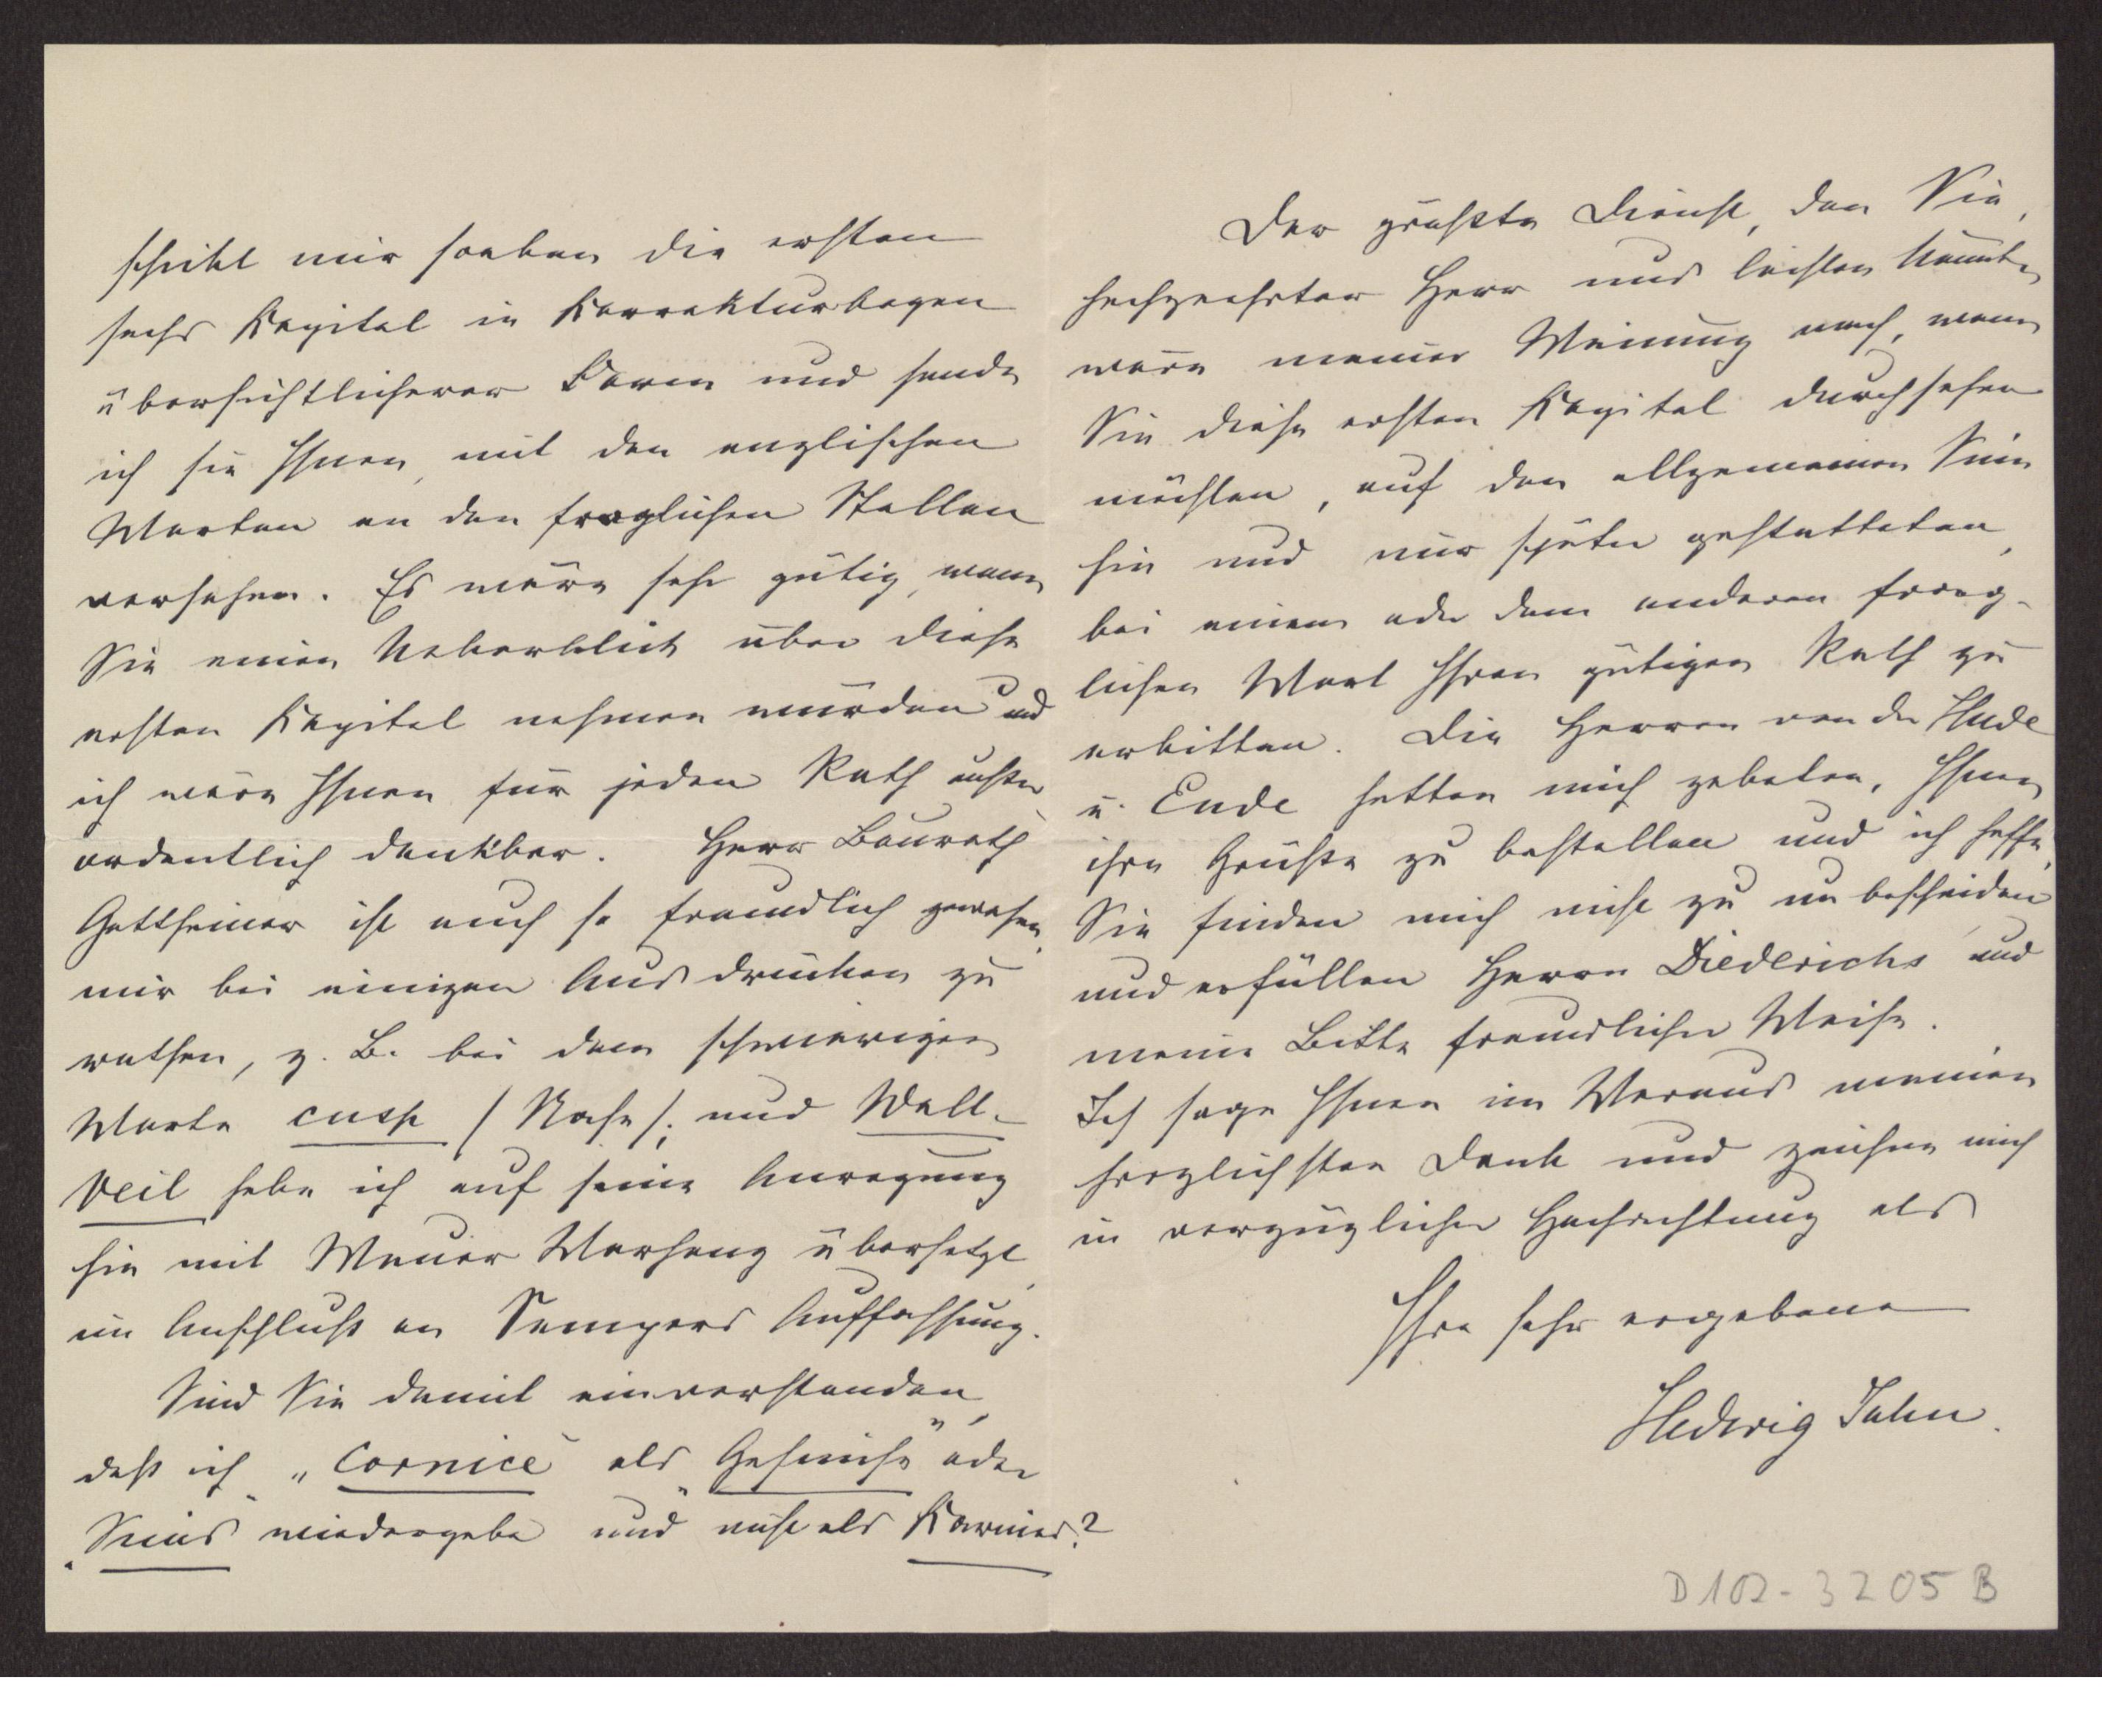 schickt mir soeben die ersten
sechs Kapitel in Korrekturbogen
übersichtlicherer Form und sende
ich sie Ihnen, mit den englischen
Worten an den fraglichen Stellen
versehen. Es wäre sehr gütig, wenn
Sie einen Ueberblick über diese
ersten Kapitel nehmen würden und
ich wäre Ihnen für jeden Rath außer
ordentlich dankbar. Herr Baurath
Gottheiner ist auch so freundlich gewesen,
mir bei einigen Ausdrücken zu
rathen, z. B. bei dem schwierigen
Worte cusp (Nase); und Wall-
veil habe ich auf seine Anregung
hin mit Mauer Vorhang übersetzt,
im Anschluß an Sempers Auffassung.
Sind Sie damit einverstanden,
daß ich „Cornice" als „Gesimse" oder
„Sims" wiedergebe und nicht als Karnies?
Der größte Dienst, den Sie,
hochgeehrter Herr uns leisten könnten
wäre meiner Meinung nach, wenn
Sie diese ersten Kapitel durchsehen
möchten, auf den allgemeinen Sinn
hin und mir später gestatteten,
bei einem oder dem anderen frag-
lichen Wort Ihren gütigen Rath zu
erbitten. Die Herren von der Hude
u. Ende hatten mich gebeten, Ihnen
ihre Grüße zu bestellen und ich hoffe,
Sie finden mich nicht zu unbescheiden
und erfüllen Herrn Diederichs und
meine Bitte freundlicher Weise.
Ich sage Ihnen im Voraus meinen
herzlichsten Dank und zeichne mich
in vorzüglicher Hochachtung als
Ihre sehr ergebene
Hedwig Jahn.
D 102-3205 B